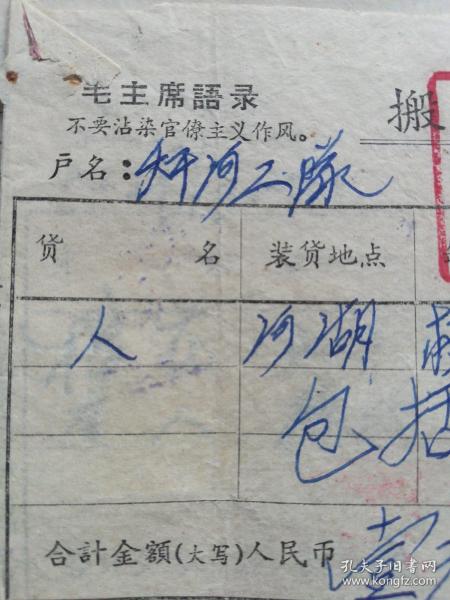 毛主席語录
搬
不要沾染官僚主义作风。
户名：河工隊
货名 装货地点
人 河湖
包括
合計金額(大写)人民币 壹
孔夫子旧书网
www.kongfz.com